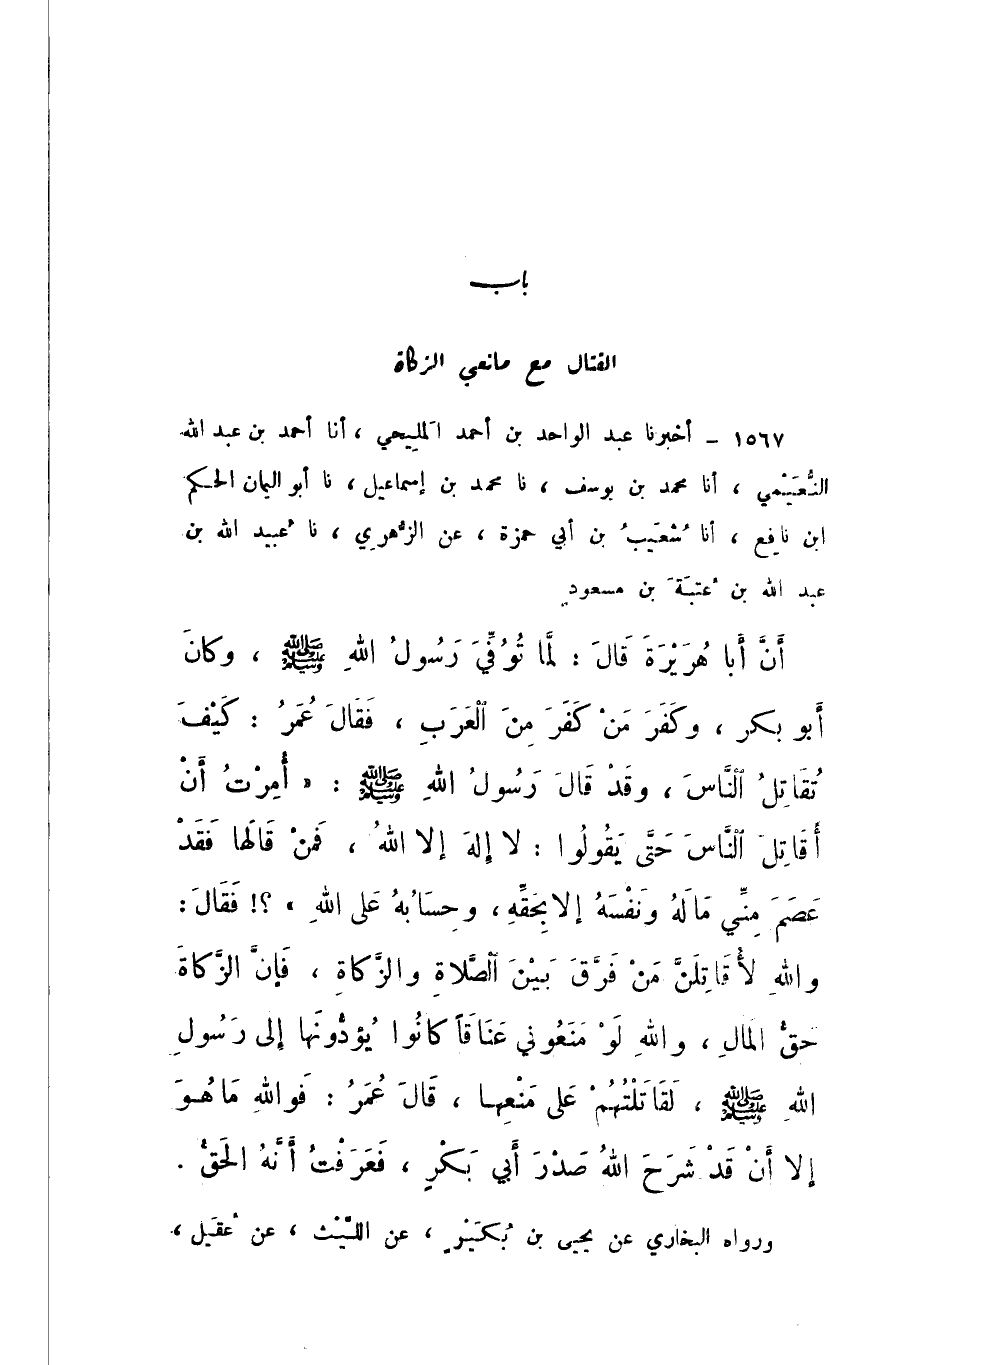 باب
القتال مع مانعي الزكاة
١٥٦٧ – أخبرنا عبد الواحد بن أحمد المَلِيحي ، أنا أحمد بن عبد الله
النُّعَيْمي ، أنا محمد بن يوسف ، نا محمد بن إسماعيل ، نا أبو اليمان الحكم
ابن نافِع ، أنا شُعَيبُ بن أبي حمزة ، عن الزُّهرِي ، نا عُبيد الله بن
عبد الله بن عُتبَةَ بن مسعودٍ
أَنَّ أَبا هُرَيْرَةَ قَالَ : لَمَّا تُوُفِّيَ رَسُولُ اللهِ ﷺ ، وكانَ
أَبو بكر ، وكَفَرَ مَنْ كَفَرَ مِنَ ٱلْعَرَبِ ، فَقَالَ عُمَرُ : كَيْفَ
تُقَاتِلُ ٱلنَّاسَ ، وقَدْ قَالَ رَسُولُ اللهِ ﷺ : « أُمِرْتُ أَنْ
أُقَاتِلَ ٱلنَّاسَ حَتَّى يَقُولُوا : لا إِلهَ إلا اللهُ ، فَمنْ قَالَها فَقَدْ
عَصَمَ مِنِّي مَالَهُ ونَفْسَهُ إلا بِحَقِّهِ ، وحِسَابُهُ عَلى اللهِ » ؟! فَقَالَ :
واللهِ لأُقَاتِلَنَّ مَنْ فَرَّقَ بَيْنَ ٱلصَّلاةِ والزَّكاةِ ، فَإنَّ الزَّكاةَ
حَقُّ المَالِ ، واللهِ لَوْ مَنَعُوني عَنَاقَاً كانُوا يُؤَدُّونَها إلى رَسُولِ
اللهِ ﷺ ، لَقَاتَلْتُهُمْ عَلى مَنْعِها ، قَالَ عُمَرُ : فَواللهِ مَا هُوَ
إلا أَنْ قَدْ شَرَحَ اللهُ صَدْرَ أَبي بَكْرٍ ، فَعَرَفْتُ أَنَّهُ الحَقُّ .
ورواه البخاري عن يحيى بن بُكَيْرٍ ، عن اللَّيْث ، عن عُقَيل ،